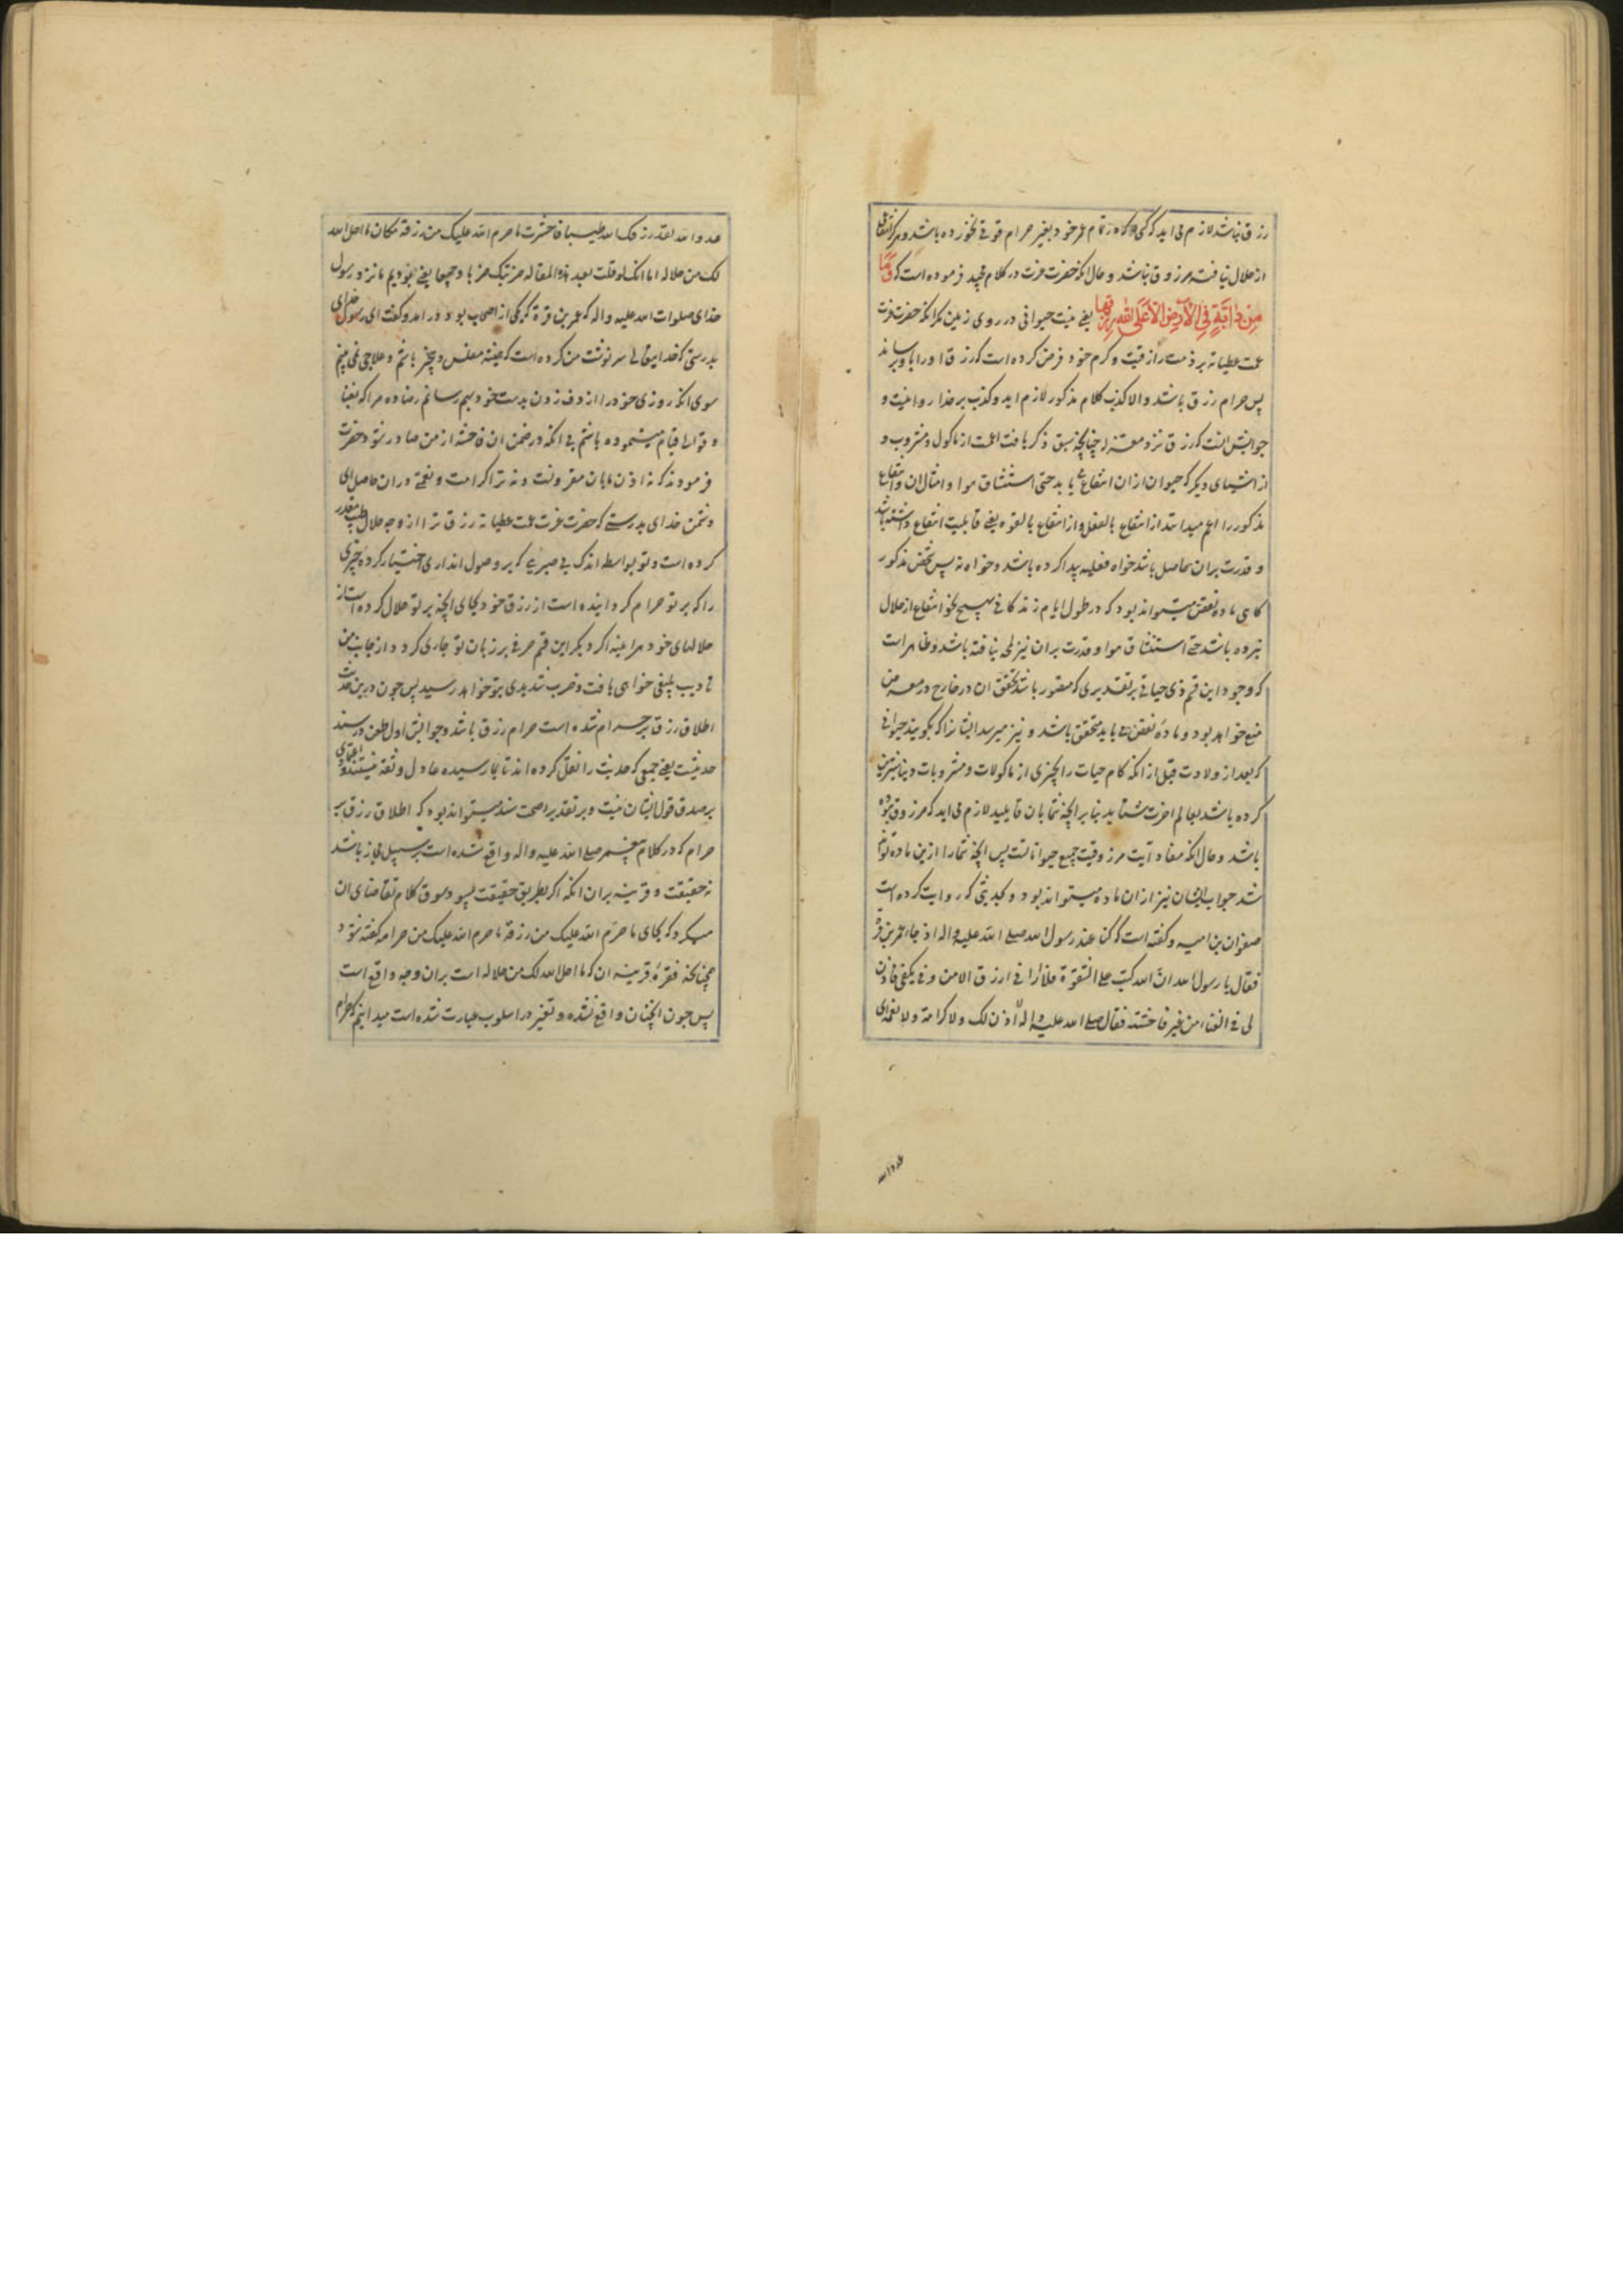 رزق نباشد لازم می اید که کسی که در تمام عمر خود بغیر حرام قوتی نخورده باشد و هرگز انتفاعی
از حلال نیافته مرزوق نباشد و حال انکه حضرت عزت در کلام مجید فرموده است که وَمَا
مِن دَابَّةٍ فِی الْاَرْضِ اِلَّا عَلَی اللهِ رِزْقُهَا یعنی نیست حیوانی در روی زمین مکر انکه حضرت عزت
عمت عطیاته بر ذمت رازقیت و کرم خود فرض کرده است که رزق او را باو برساند
پس حرام رزق باشد والا کذب کلام مذکور لازم اید و کذب بر خدا روا نیست و
جوابش انست که رزق نزد معتزله چنانچه سبق ذکر یافت اعمست از ماکول و مشروب و
از اشیای دیگر که حیوان ازان انتفاع یابد حتی استنشاق هوا و امثال ان و انتفاع
مذکور را اعم میدانند از انتفاع بالفعل و از انتفاع بالقوه یعنی قابلیت انتفاع داشته باشد
و قدرت بران حاصل باشد خواه فعلیه پیدا کرده باشد و خواه نه پس شخص مذکور
کاهی ماده نقض میتواند بود که در طول ایام زندکانی بهیچ نحو انتفاع از حلال
نبرده باشد حتی استنشاق هوا و قدرت بران نیز لمحه نیافته باشد و ظاهر است
که وجود این قسم ذی حیاتی بر تقدیری که مقدور باشد تحقق ان در خارج در معرض
منع خواهد بود و ماده نقض می باید متحقق باشد و نیز میرسد ایشانرا که بکویند حیوانی
که بعد از ولادت قبل از انکه کام حیات را بچیزی از ماکولات و مشروبات دنیا شیرین
کرده باشد بعالم اخرت شتابد بنابر انچه شما بان قایلید لازم می اید که مرزوق نبوده
باشد و حال انکه مفاد آیت مرزوقیت جمیع حیواناتست پس انچه شما را ازین ماده تواند
شد جواب ایشان نیز ازان ماده میتواند بود و بحدیثی که روایت کرده است
صفوان بن امیه و کفته است که کنا عند رسول الله صلی الله علیه و اله اذ جاء عمر بن قرة
فقال یا رسول الله انّ الله کتب علی الشقوة فلا ارانی ارزق الا من دفی بکفی فاذن
لی فی الغناء من غیر فاحشة فقال صلی الله علیه و اله لا اذن لک ولا کرامة ولا نعمة ای
عدو الله
عدو الله لقد رزقک الله طیبا فاخترت ما حرم الله علیک من رزقه مکان ما احل الله
لک من حلاله اما انک لو قلت بعد هذه المقالة ضربتک ضربا وجیعا یعنی بودیم ما نزد رسول
خدای صلوات الله علیه و اله که عمر بن قرة که یکی از اصحاب بود در امد و کفت ای رسول خدای
بدرستی که خدایتعالی سرنوشت من کرده است که همیشه مفلس و بیچیز باشم و علاجی نمی بینم
سوی انکه روزی خود را از دف زدن بدست خود بهم رسانم رضا ده مرا که بغنا
و قوالی قیام مینموده باشم بی انکه در ضمن ان فاحشه از من صادر شود حضرت
فرمودند که نه اذن مابان مقرونست و نه ترا کرامت و نعمتی دران حاصل ای
دشمن خدای بدرستی که حضرت عزت عمت عطیاته رزق ترا از وجه حلال طیب مقدر
کرده است و تو بواسطه اندک بی صبری که بر وصول ان داری اختیار کردهٔ چیزی
را که بر تو حرام کردانیده است از رزق خود بجای انچه بر تو حلال کرده است از
حلالهای خود هراینه اکر دیکر این قسم حرفی بر زبان تو جاری کردد از جانب من
تادیب بلیغی خواهی یافت و ضرب شدیدی بتو خواهد رسید پس چون درین حدیث
اطلاق رزق بر حرام شده است حرام رزق باشد و جوابش اول طعن در سند
حدیثست یعنی جمعی که حدیث را نقل کرده اند تا بما رسیده عادل و ثقه نیستند و اعتمادی
بر صدق قول ایشان نیست و بر تقدیر صحت سند میتواند بود که اطلاق رزق بر
حرام که در کلام پیغمبر صلی الله علیه و اله واقع شده است بر سبیل مجاز باشد
نه حقیقت و قرینه بران انکه اکر بطریق حقیقت میبود سوق کلام تقاضای ان
میکرد که بجای ما حرّم الله علیک من رزقه ما حرم الله علیک من حرامه کفته شود
چنانکه فقرهٔ قرینه ان که ما احل الله لک من حلاله است بران وجه واقع است
پس چون انچنان واقع نشده و تغییر در اسلوب عبارت شده است میدانیم که حرام